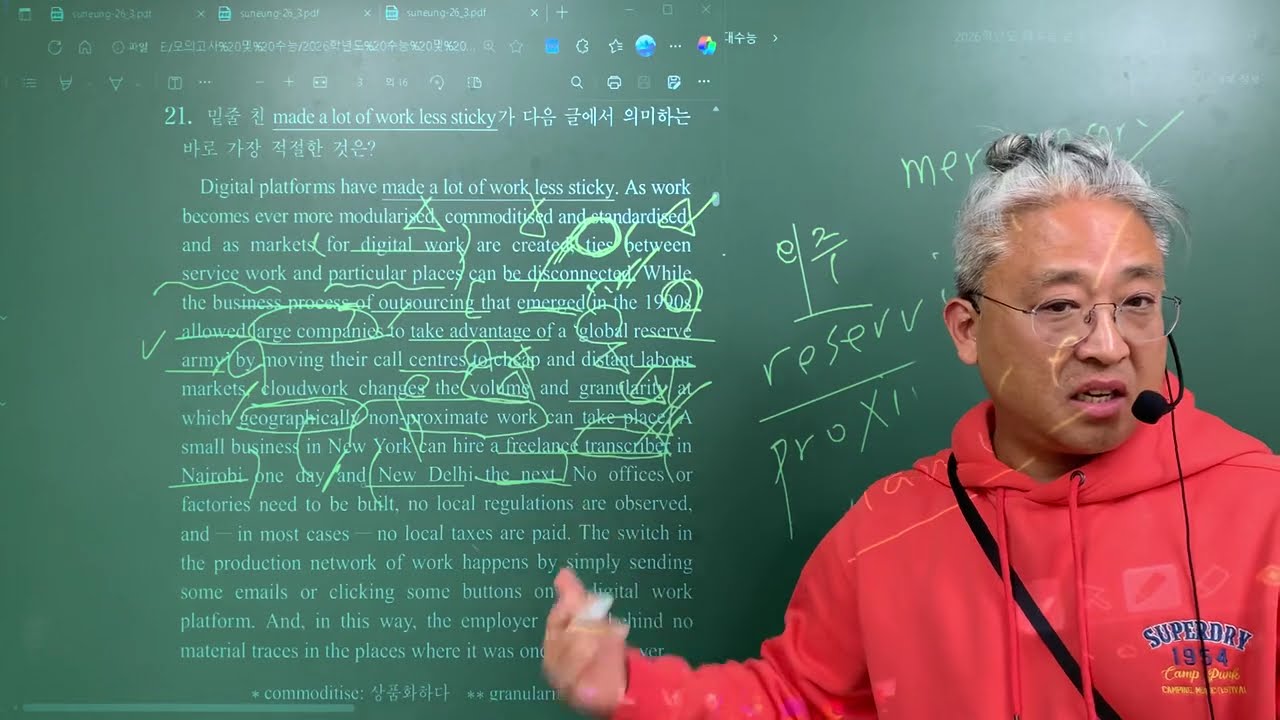 suneung-26_3.pdf
suneung-26_3.pdf
suneung-26_3.pdf
파일
E:/모의고사%20및%20수능/2026학년도%20수능%20및%20...
대수능
3 의 16
21. 밑줄 친 made a lot of work less sticky가 다음 글에서 의미하는
바로 가장 적절한 것은?
Digital platforms have made a lot of work less sticky. As work
becomes ever more modularised, commoditised and standardised,
and as markets for digital work are created, ties between
service work and particular places can be disconnected. While
the business process of outsourcing that emerged in the 1990s
allowed large companies to take advantage of a 'global reserve
army' by moving their call centres to cheap and distant labour
markets, cloudwork changes the volume and granularity at
which geographically non-proximate work can take place. A
small business in New York can hire a freelance transcriber in
Nairobi one day and New Delhi the next. No offices or
factories need to be built, no local regulations are observed,
and — in most cases — no local taxes are paid. The switch in
the production network of work happens by simply sending
some emails or clicking some buttons on digital work
platform. And, in this way, the employer behind no
material traces in the places where it was
* commoditise: 상품화하다 ** granularit
mer
e 2
1
reserv
proxi
SUPERDRY
1954
Camp Punk